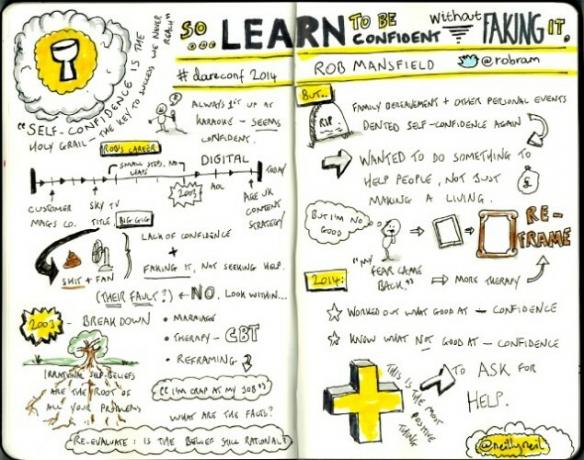 SO... LEARN TO BE CONFIDENT without FAKING IT.
#dareconf 2014
ROB MANSFIELD @robram
"SELF-CONFIDENCE IS THE
HOLY GRAIL - THE KEY TO SUCCESS WE NEVER
REACH"
ALWAYS 1ST UP AT
KARAOKE - SEEMS
CONFIDENT.
ROB'S CAREER
SMALL STEPS, NO
LEAPS
DIGITAL
TODAY
2003
CUSTOMER
MAGS CO.
SKY TV
TITLE.
AOL
AGE UK
CONTENT
STRATEGY
BIG GIG
SHIT + FAN
LACK OF CONFIDENCE
+
FAKING IT, NOT SEEKING HELP.
(THEIR FAULT?) ← NO. LOOK WITHIN...
2003 - BREAKDOWN
• MARRIAGE
• THERAPY - CBT
• REFRAMING
IRRATIONAL SELF-BELIEFS
ARE THE ROOT OF
ALL YOUR PROBLEMS
"I'M CRAP AT MY JOB"
WHAT ARE THE FACTS?
RE-EVALUATE: IS THE BELIEF STILL RATIONAL?
BUT...
RIP
FAMILY BEREAVEMENT + OTHER PERSONAL EVENTS
DENTED SELF-CONFIDENCE AGAIN
WANTED TO DO SOMETHING TO
HELP PEOPLE, NOT JUST
MAKING A LIVING.
£
BUT I'M NO
GOOD
RE-
FRAME
2014:
"MY
FEAR CAME
BACK." → MORE THERAPY
☆ WORKED OUT WHAT GOOD AT - CONFIDENCE
☆ KNOW WHAT NOT GOOD AT - CONFIDENCE
TO ASK FOR
HELP.
THIS IS THE MOST
POSITIVE
THING
@neillyneil